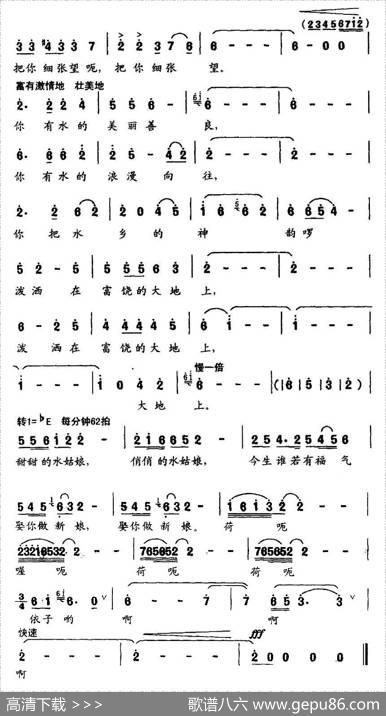 (2 3 4 5 6 7 1 2
3 3 4 3 3 7 | 2 2 3 7 6 | 6 - - - | 6 - 0 0 |
把你细张望呃,把你细张 望。
富有激情地 壮美地
2· 2 2 4 | 5 5 6 - | 6 - - - | 6 - - - |
你 有水的 美丽善 良,
6· 6 6 2 | 2 5 - 4 2 | 2 - - - | 2 - - - |
你 有水的 浪漫 向 往,
2· 2 6 2 | 2 0 4 5 | 1 6 6 2 | 6 6 5 4 - |
你 把水 乡的 神 韵啰
5 2 - 5 | 5 5 5 6 3 | 2 - - - | 2 - - - |
泼洒 在 富饶的大地 上,
6 - 2 5 | 4 4 4 4 5 | 6 1 - - | 1 - - - |
泼 洒在富饶的大地 上,
慢一倍
1 - - - | 1 0 4 2 | 6 - - - | (6 5 3 2) |
大地 上。
转1=♭E 每分钟62拍
5 5 6 1 2 2 - | 2 1 6 6 5 2 - | 2 5 4· 2 5 4 5 6 |
甜甜的水姑娘, 俏俏的水姑娘, 今生谁若有福 气
5 4 5 6 3 2 - | 5 4 5 6 3 2 - | 1 6 1 3 2 2 - |
娶你做新 娘, 娶你做新娘。 荷 呃
2 3 2 1 6 5 3 2 2 - - | 7 6 5 6 5 2 2 - - | 7 6 5 6 5 2 2 - - |
喔 呃 荷 呃 荷 呃
3/4 6 1 6· 0 ∨ | 6 - 7 | 7 6 5 3· 3 ∨ |
依子 哟 啊 啊
快速 fff
2 - - - | 2 - - - | 2 - - - | 2 0 0 0 ‖
啊
高清下载 >>> 歌谱八六 www.gepu86.com